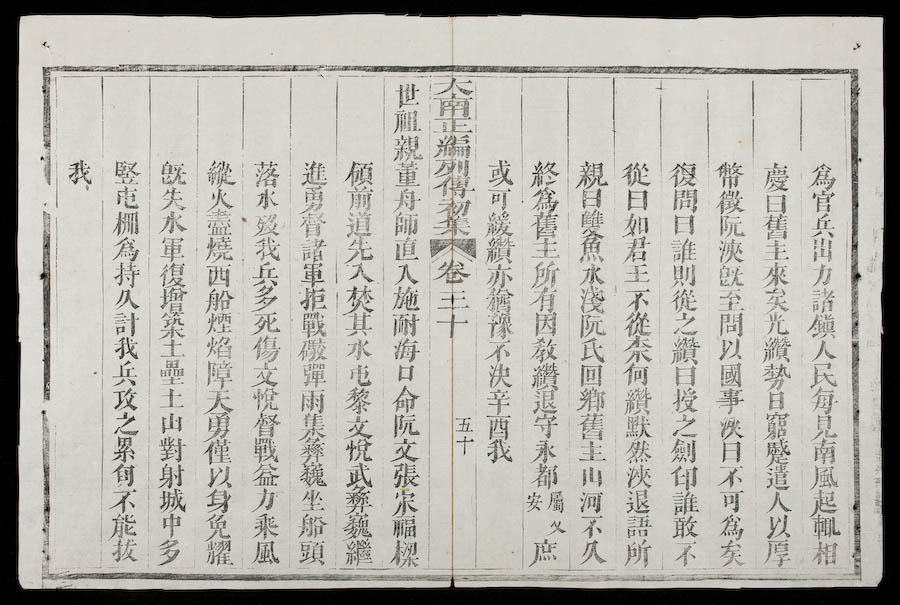 為官兵出力諸鎮人民每見南風起輒相
慶曰舊主來矣光纘勢日窮蹙遣人以厚
幣徵阮浹旣至問以國事浹曰不可為矣
復問曰誰則從之纘曰授之劍印誰敢不
從曰如君王不從柰何纘默然浹退語所
親曰雙魚水淺阮氏回鄉舊主山河不久
終為舊主所有因教纘退守永都屬乂安庶
或可緩纘亦猶豫不決辛酉我
大南正編列傳初集 卷三十 五十
世祖親董舟師直入施耐海口命阮文張宋福樑
領前道先入焚其水屯黎文悅武彝巍繼
進勇督諸軍拒戰礮彈雨集彝巍坐船頭
落水歿我兵多死傷文悅督戰益力乘風
縱火盡燒西船煙焰障天勇僅以身免耀
旣失水軍復增築土壘土山對射城中多
竪屯柵為持久計我兵攻之累旬不能拔
我